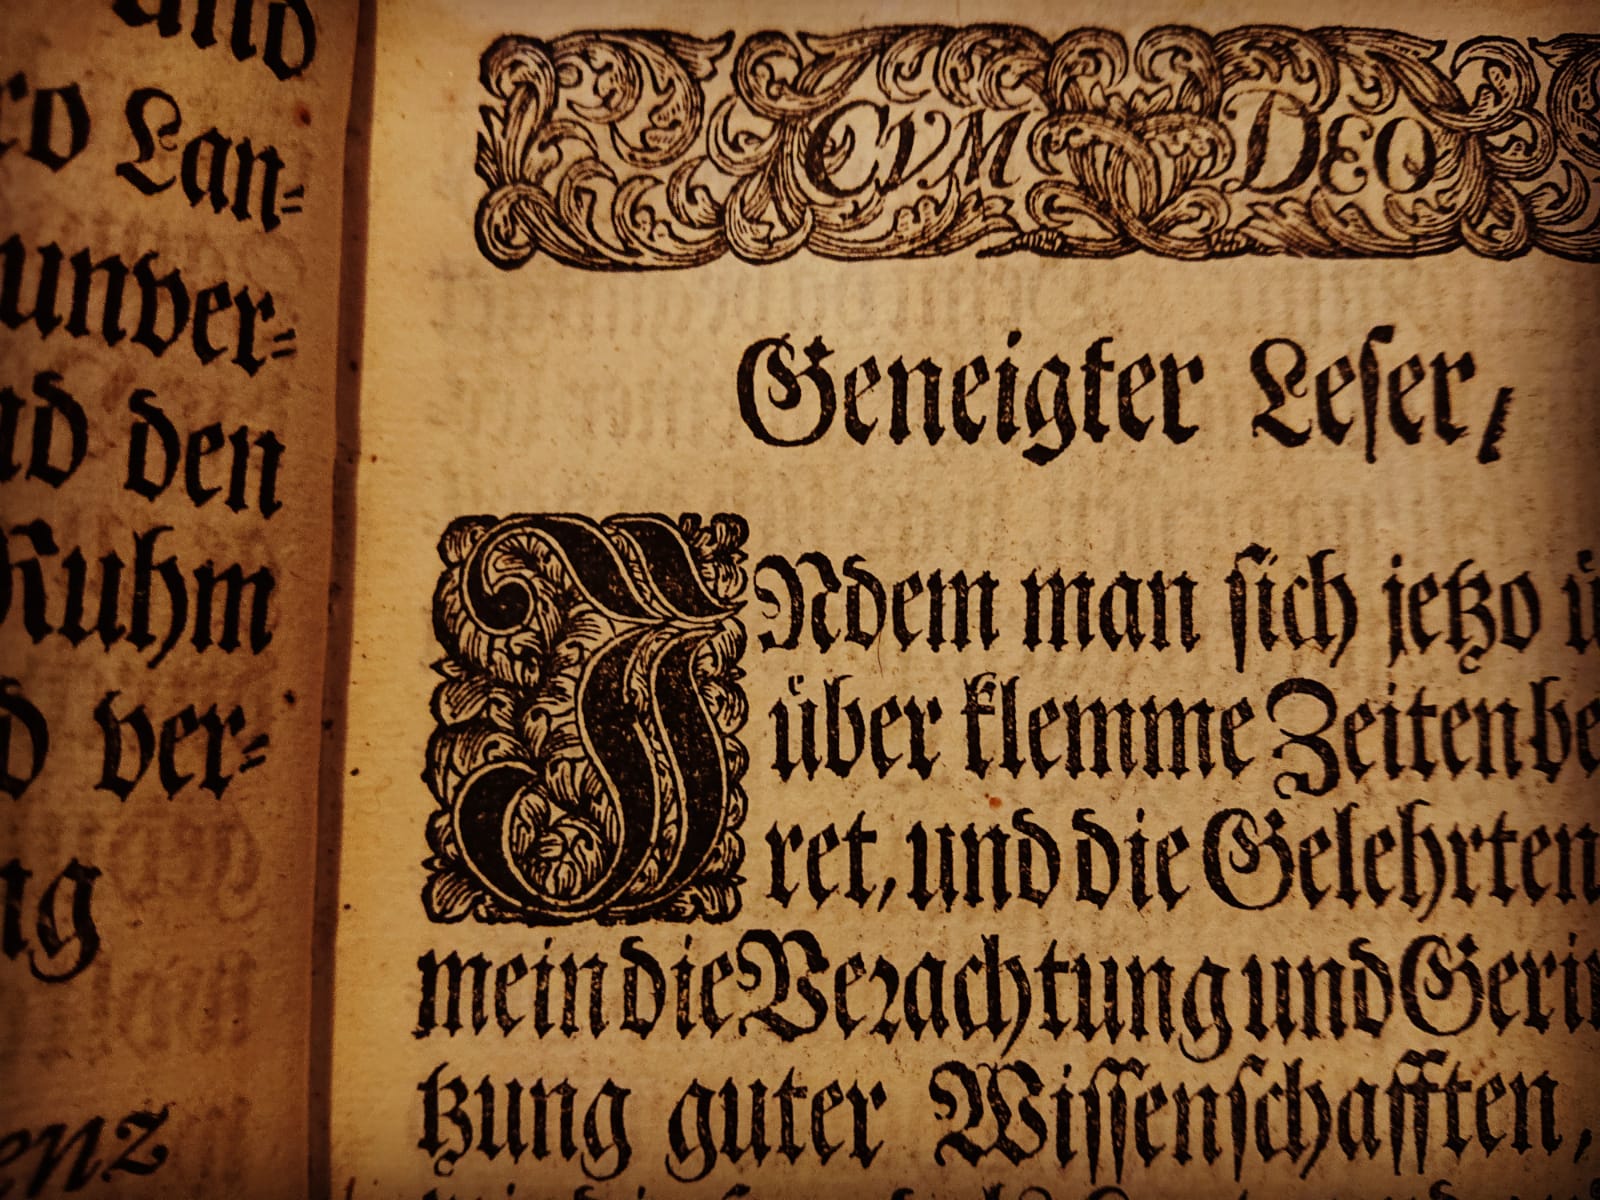 und
Lan⸗
unver⸗
den
Ruhm
ver⸗
CVM DEO
Geneigter Leſer/
INdem man ſich jetzo
über klemme Zeiten
ret, und die Gelehrten
mein die Verachtung und
tzung guter Wiſſenſchafften,